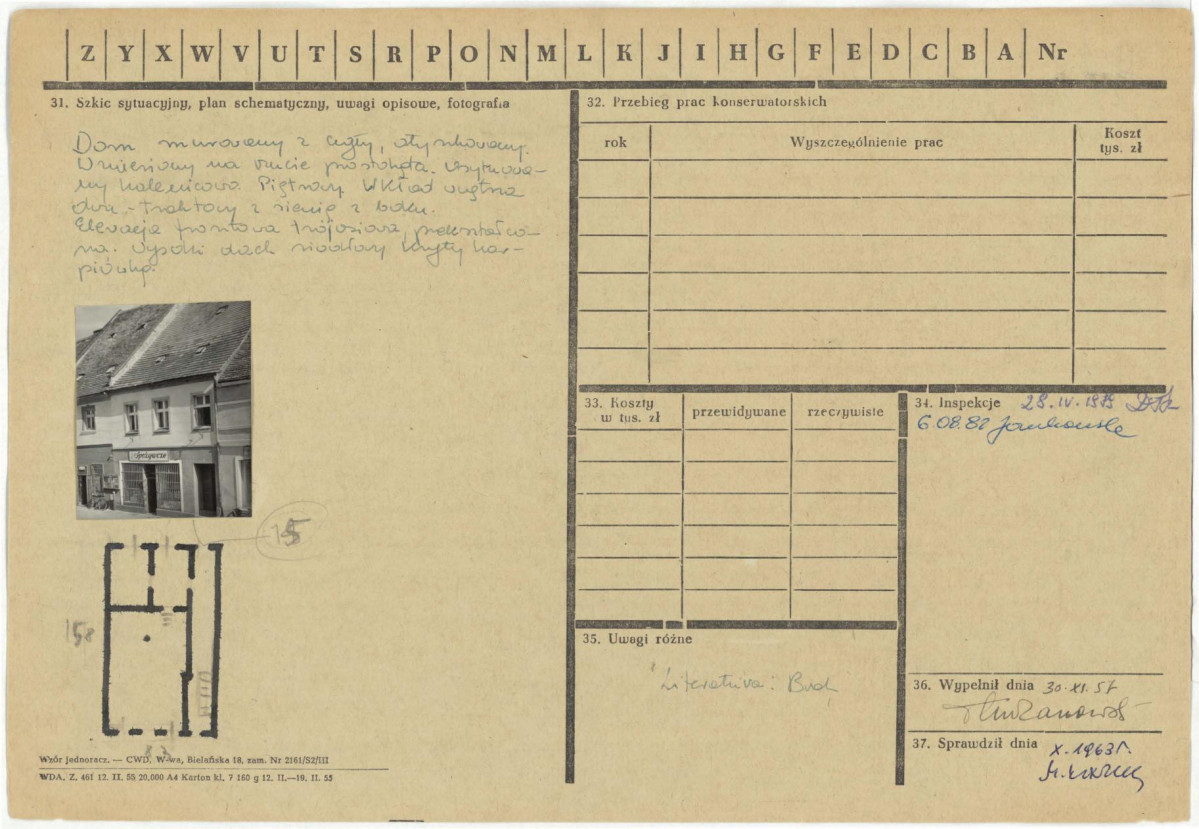 Z Y X W V U T S R P O N M L K J I H G F E D C B A Nr
31. Szkic sytuacyjny, plan schematyczny, uwagi opisowe, fotografia
Dom murowany z cegły, otynkowany.
Wzniesiony na rzucie prostokąta. Usytuowa-
ny kalenicowo. Piętrowy. Układ wnętrza
dwu-traktowy z sienią z boku.
Elewacja frontowa trójosiowa, przekształco-
na. Wysoki dach siodłowy kryty kar-
piówką.
Spożywcze
15
158
32. Przebieg prac konserwatorskich
rok Wyszczególnienie prac Koszt tys. zł
33. Koszty w tys. zł przewidywane rzeczywiste
34. Inspekcje 28.IV.1979
6.08.82 Jankowska
35. Uwagi różne
Literatura: Bud
36. Wypełnił dnia 30.XI.57
37. Sprawdził dnia X.1963r.
Wzór jednoraz. — CWD, W-wa, Bielańska 18, zam. Nr 2161/S2/III
WDA. Z. 461 12. II. 55 20.000 A4 Karton kl. 7 160 g 12. II.—19. II. 55